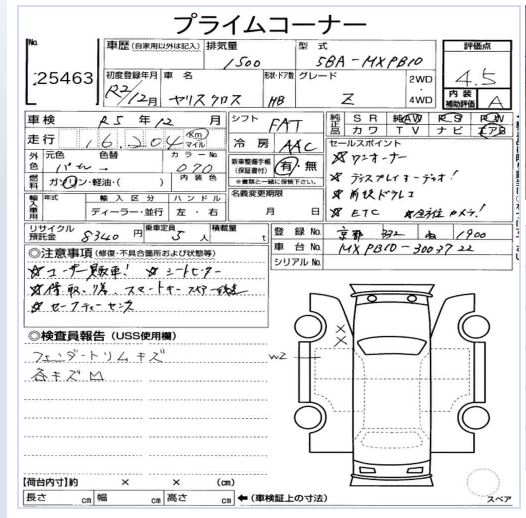 プライムコーナー
No.
25463
車歴 (自家用以外は記入)
排気量
1500
型式
5BA-MXPB10
評価点
4.5
内装補助評価
A
初度登録年月
R2/12月
車名
ヤリスクロス
形状・ドア数
HB
グレード
Z
2WD
・
4WD
車検 R5年12月
走行 16,204 Km マイル
シフト
FAT
冷房
AAC
純正品 SR 純AW PS PW
カワ TV ナビ エアB
外色
元色
色替
カラーNo.
070
内装色
燃料 ガソリン・軽油・( )
新車整備手帳(保証書付)
有・無
※書類と一緒に保管下さい。
セールスポイント
☆ワンオーナー
☆ディスプレイオーディオ!
☆前後ドラレコ
☆ETC ☆全方位カメラ!
輸入車用
年式
輸入区分
ハンドル
ディーラー・並行
左・右
名義変更期限
月 日
リサイクル預託金
8340円
乗車定員
5人
積載量
t
登録No. 京都 332 ぬ 1900
車台No. MXPB10-3003722
シリアルNo.
◎注意事項 (修復・不具合箇所および状態等)
☆ユーザー買取車! ☆シートヒーター
☆セーフティーセンス
◎検査員報告 (USS使用欄)
フェンダートリムキズ
各キズM
W2
【荷台内寸】約 × × (cm)
長さ cm 幅 cm 高さ cm
←(車検証上の寸法)
スペア